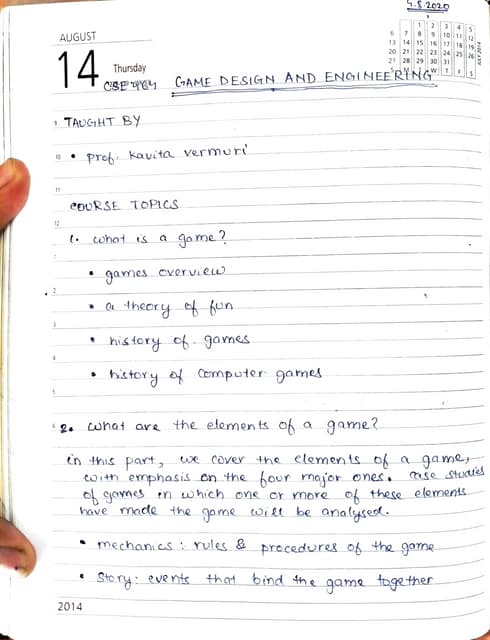 5.8.2020
AUGUST
14 Thursday
GAME DESIGN AND ENGINEERING
9 TAUGHT BY
10 • prof. Kavita vermuri
11
COURSE TOPICS
12
1. what is a game?
• games overview
2
• a theory of fun
3
• history of games
4
• history of computer games
5
2. what are the elements of a game?
in this part, we cover the elements of a game,
with emphasis on the four major ones. case studies
of games in which one or more of these elements
have made the game will be analysed.
• mechanics : rules & procedures of the game
• Story: events that bind the game together
2014